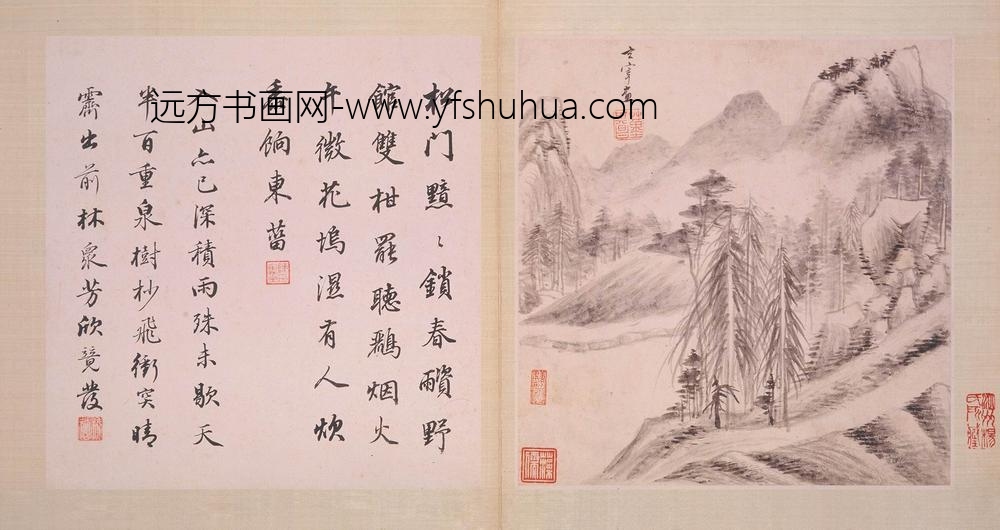 玄宰畫
松门黯〻鎖春野
館雙柑罷聽鸝烟火
午微花塢濕有人炊
黍餉東菑
山亦已深積雨殊未歇天
半百重泉樹杪飛衝突晴
霽出前林衆芳欣競發
远方书画网-www.yfshuhua.com